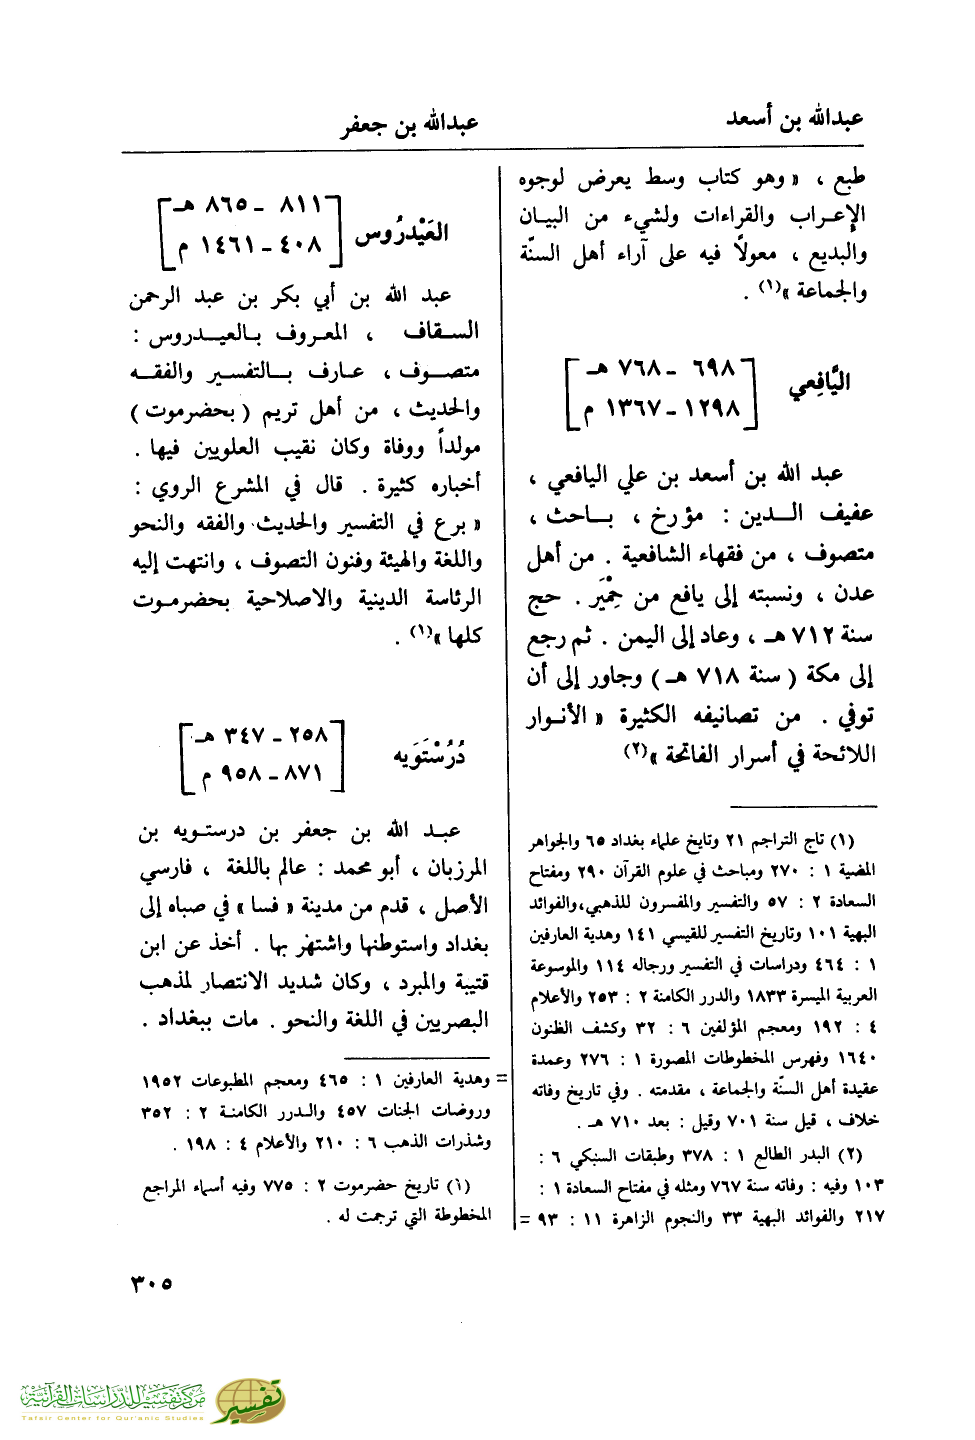 عبدالله بن أسعد
عبدالله بن جعفر
طبع ، « وهو كتاب وسط يعرض لوجوه
الإعراب والقراءات ولشيء من البيان
والبديع ، معولاً فيه على آراء أهل السنّة
والجماعة »(١) .
اليَّافِعي
٦٩٨ ـ ٧٦٨ هـ
١٢٩٨ ـ ١٣٦٧ م
عبد الله بن أسعد بن علي اليافعي ،
عفيف الدين : مؤرخ ، باحث ،
متصوف ، من فقهاء الشافعية . من أهل
عدن ، ونسبته إلى يافع من حِمْيَر . حج
سنة ٧١٢ هـ ، وعاد إلى اليمن . ثم رجع
إلى مكة ( سنة ٧١٨ هـ ) وجاور إلى أن
توفي . من تصانيفه الكثيرة « الأنوار
اللائحة في أسرار الفاتحة »(٢)
(١) تاج التراجم ٢١ وتايخ علماء بغداد ٦٥ والجواهر
المضية ١ : ٢٧٠ ومباحث في علوم القرآن ٢٩٠ ومفتاح
السعادة ٢ : ٥٧ والتفسير والمفسرون للذهبي،والفوائد
البهية ١٠١ وتاريخ التفسير للقيسي ١٤١ وهدية العارفين
١ : ٤٦٤ ودراسات في التفسير ورجاله ١١٤ والموسوعة
العربية الميسرة ١٨٣٣ والدرر الكامنة ٢ : ٢٥٣ والأعلام
٤ : ١٩٢ ومعجم المؤلفين ٦ : ٣٢ وكشف الظنون
١٦٤٠ وفهرس المخطوطات المصورة ١ : ٢٧٦ وعمدة
عقيدة أهل السنّة والجماعة ، مقدمته . وفي تاريخ وفاته
خلاف ، قيل سنة ٧٠١ وقيل : بعد ٧١٠ هـ .
(٢) البدر الطالع ١ : ٣٧٨ وطبقات السبكي ٦ :
١٠٣ وفيه : وفاته سنة ٧٦٧ ومثله في مفتاح السعادة ١ :
٢١٧ والفوائد البهية ٣٣ والنجوم الزاهرة ١١ : ٩٣ =
العَيْدرُوس
٨١١ ـ ٨٦٥ هـ
٤٠٨ ـ ١٤٦١ م
عبد الله بن أبي بكر بن عبد الرحمن
السقاف ، المعروف بالعيدروس :
متصوف ، عارف بالتفسير والفقه
والحديث ، من أهل تريم ( بحضرموت )
مولداً ووفاة وكان نقيب العلويين فيها .
أخباره كثيرة . قال في المشرع الروي :
« برع في التفسير والحديث والفقه والنحو
واللغة والهيئة وفنون التصوف ، وانتهت إليه
الرئاسة الدينية والاصلاحية بحضرموت
كلها »(١) .
دُرُسْتَوَيه
٢٥٨ ـ ٣٤٧ هـ
٨٧١ ـ ٩٥٨ م
عبد الله بن جعفر بن درستويه بن
المرزبان ، أبو محمد : عالم باللغة ، فارسي
الأصل ، قدم من مدينة « فسا » في صباه إلى
بغداد واستوطنها واشتهر بها . أخذ عن ابن
قتيبة والمبرد ، وكان شديد الانتصار لمذهب
البصريين في اللغة والنحو . مات ببغداد .
= وهدية العارفين ١ : ٤٦٥ ومعجم المطبوعات ١٩٥٢
وروضات الجنات ٤٥٧ والدرر الكامنة ٢ : ٣٥٢
وشذرات الذهب ٦ : ٢١٠ والأعلام ٤ : ١٩٨ .
(١) تاريخ حضرموت ٢ : ٧٧٥ وفيه أسماء المراجع
المخطوطة التي ترجمت له .
٣٠٥
مركز تفسير للدراسات القرآنية
Tafsir Center for Qur'anic Studies
تفسير